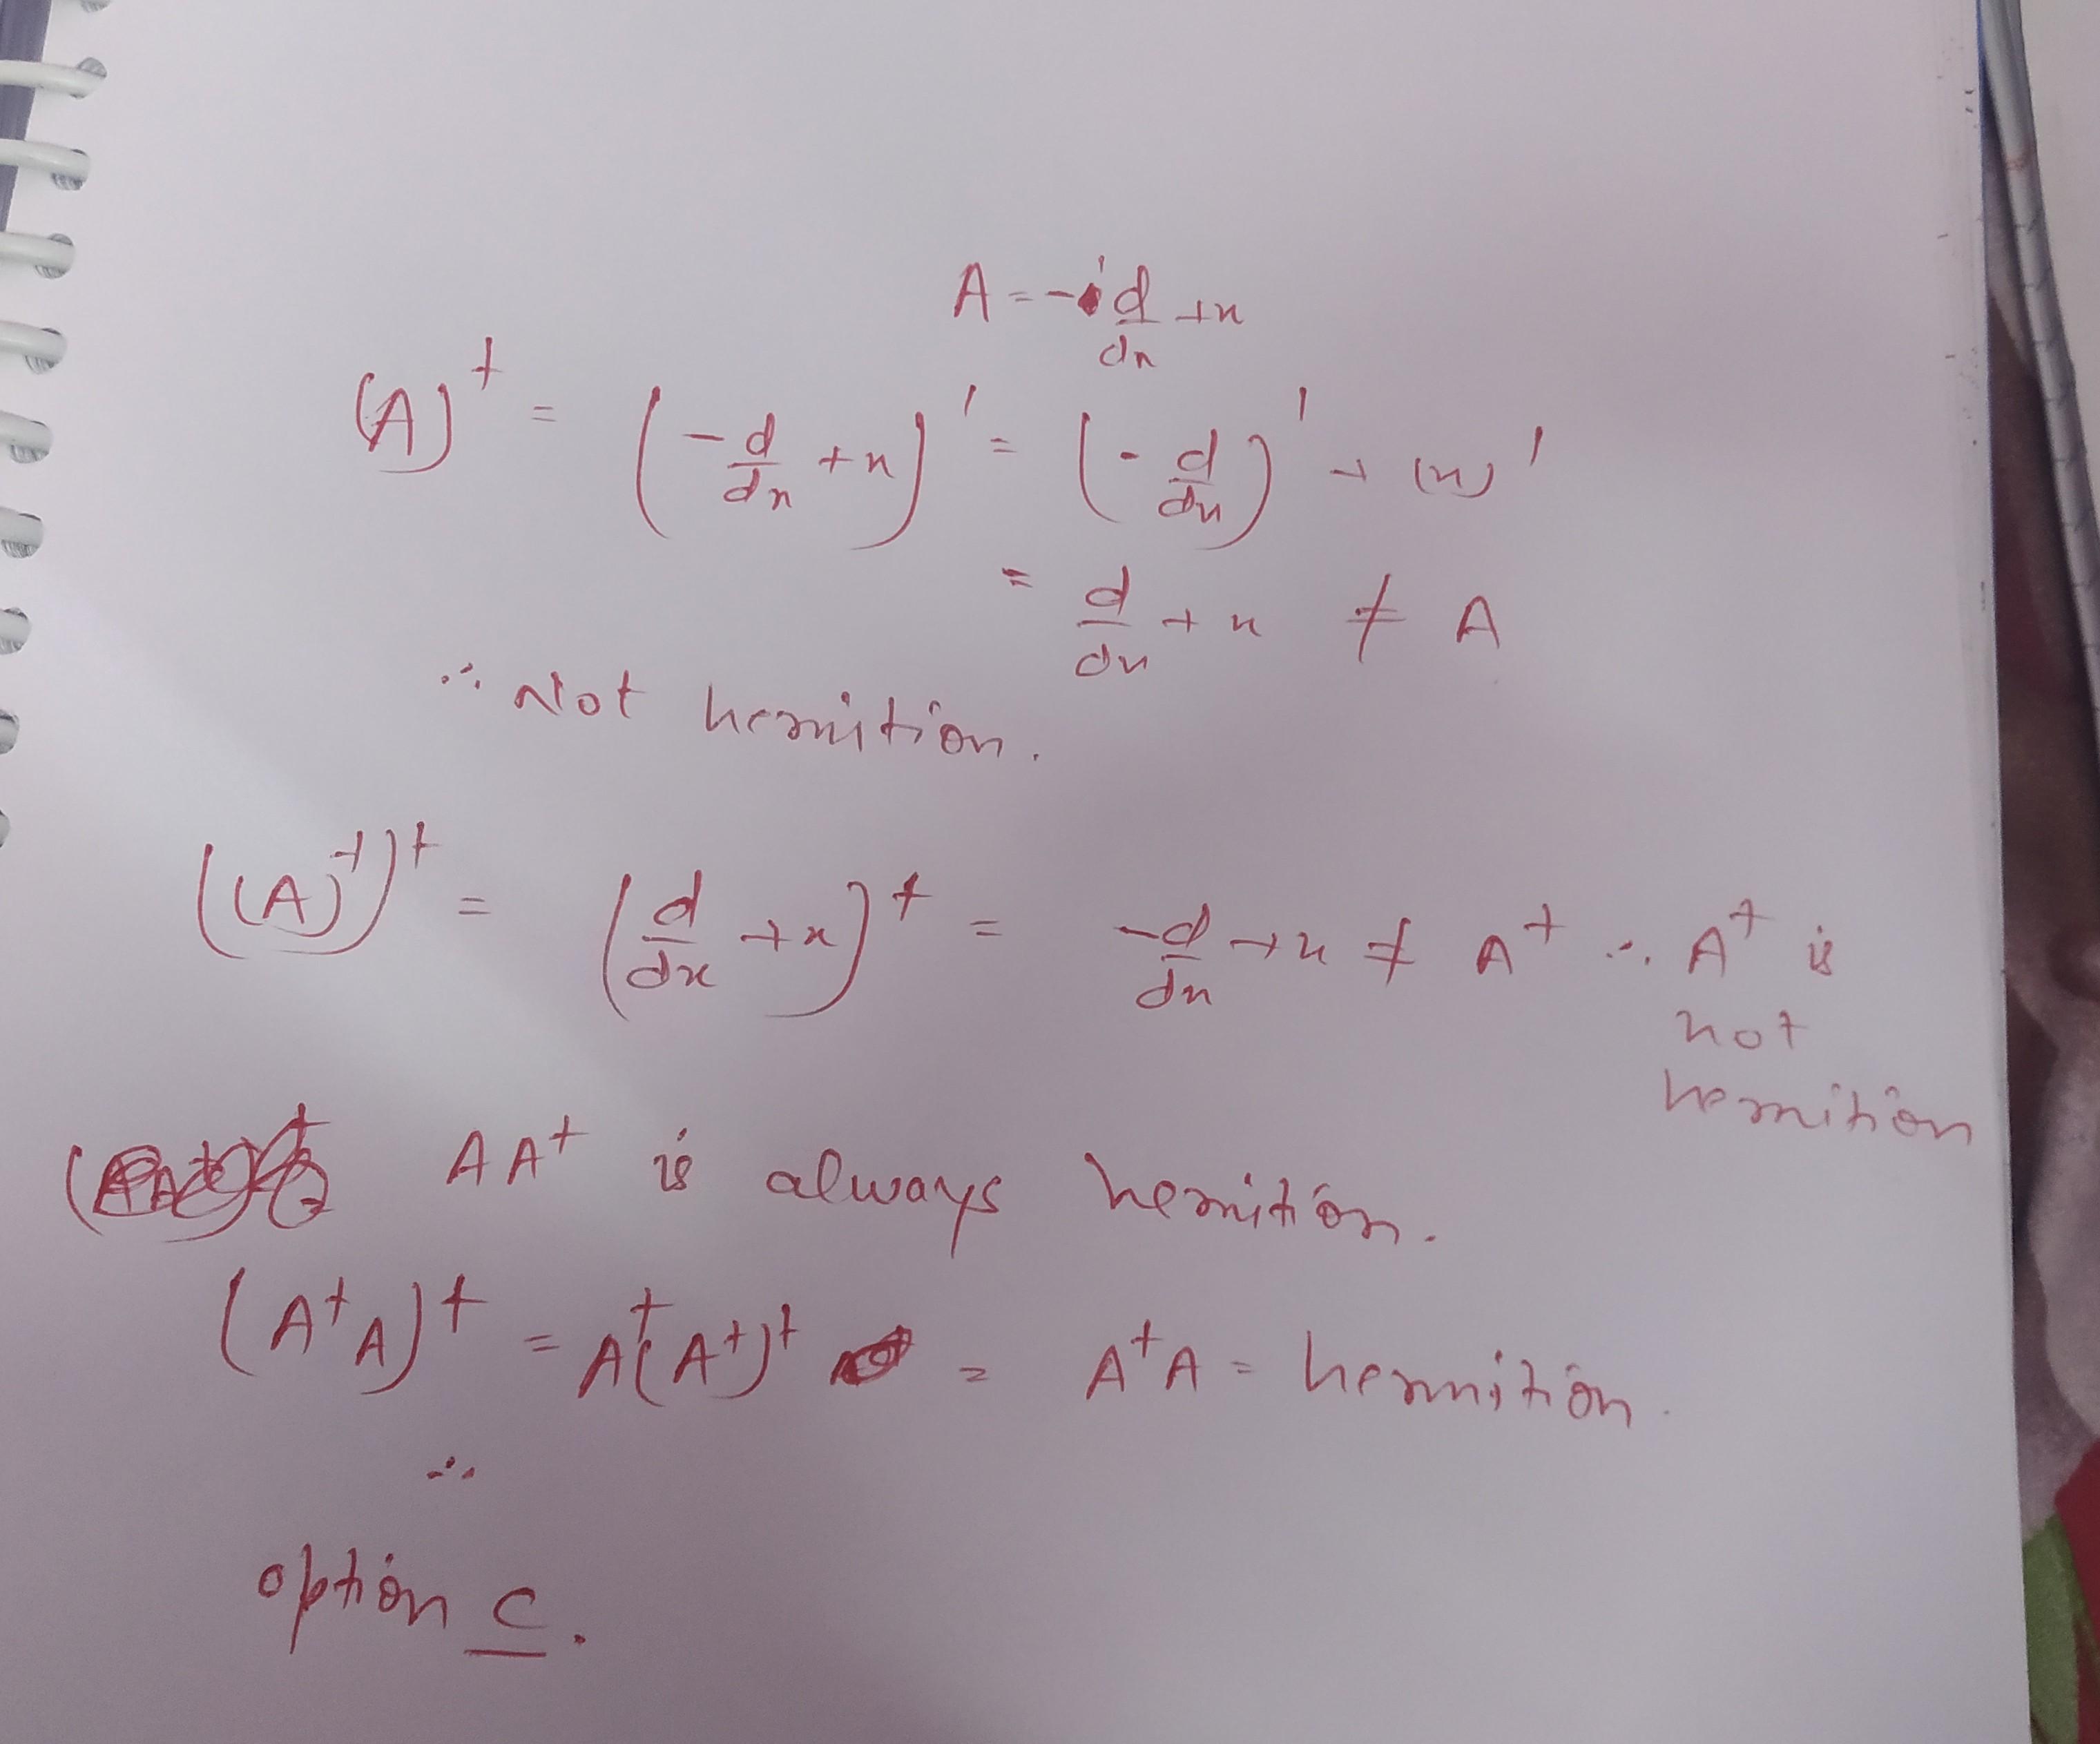 A = -i d/dn + n
(A)† = (-d/dn + n)' = (-d/dn)' + (n)'
= d/dn + n ≠ A
∴ Not hermition.
((A)†)† = (d/dx + x)† = -d/dn + n ≠ A† ∴ A† is
not
hermition
AA† is always hermition.
(A†A)† = A†(A†)† = A†A = hermition.
∴
option C.